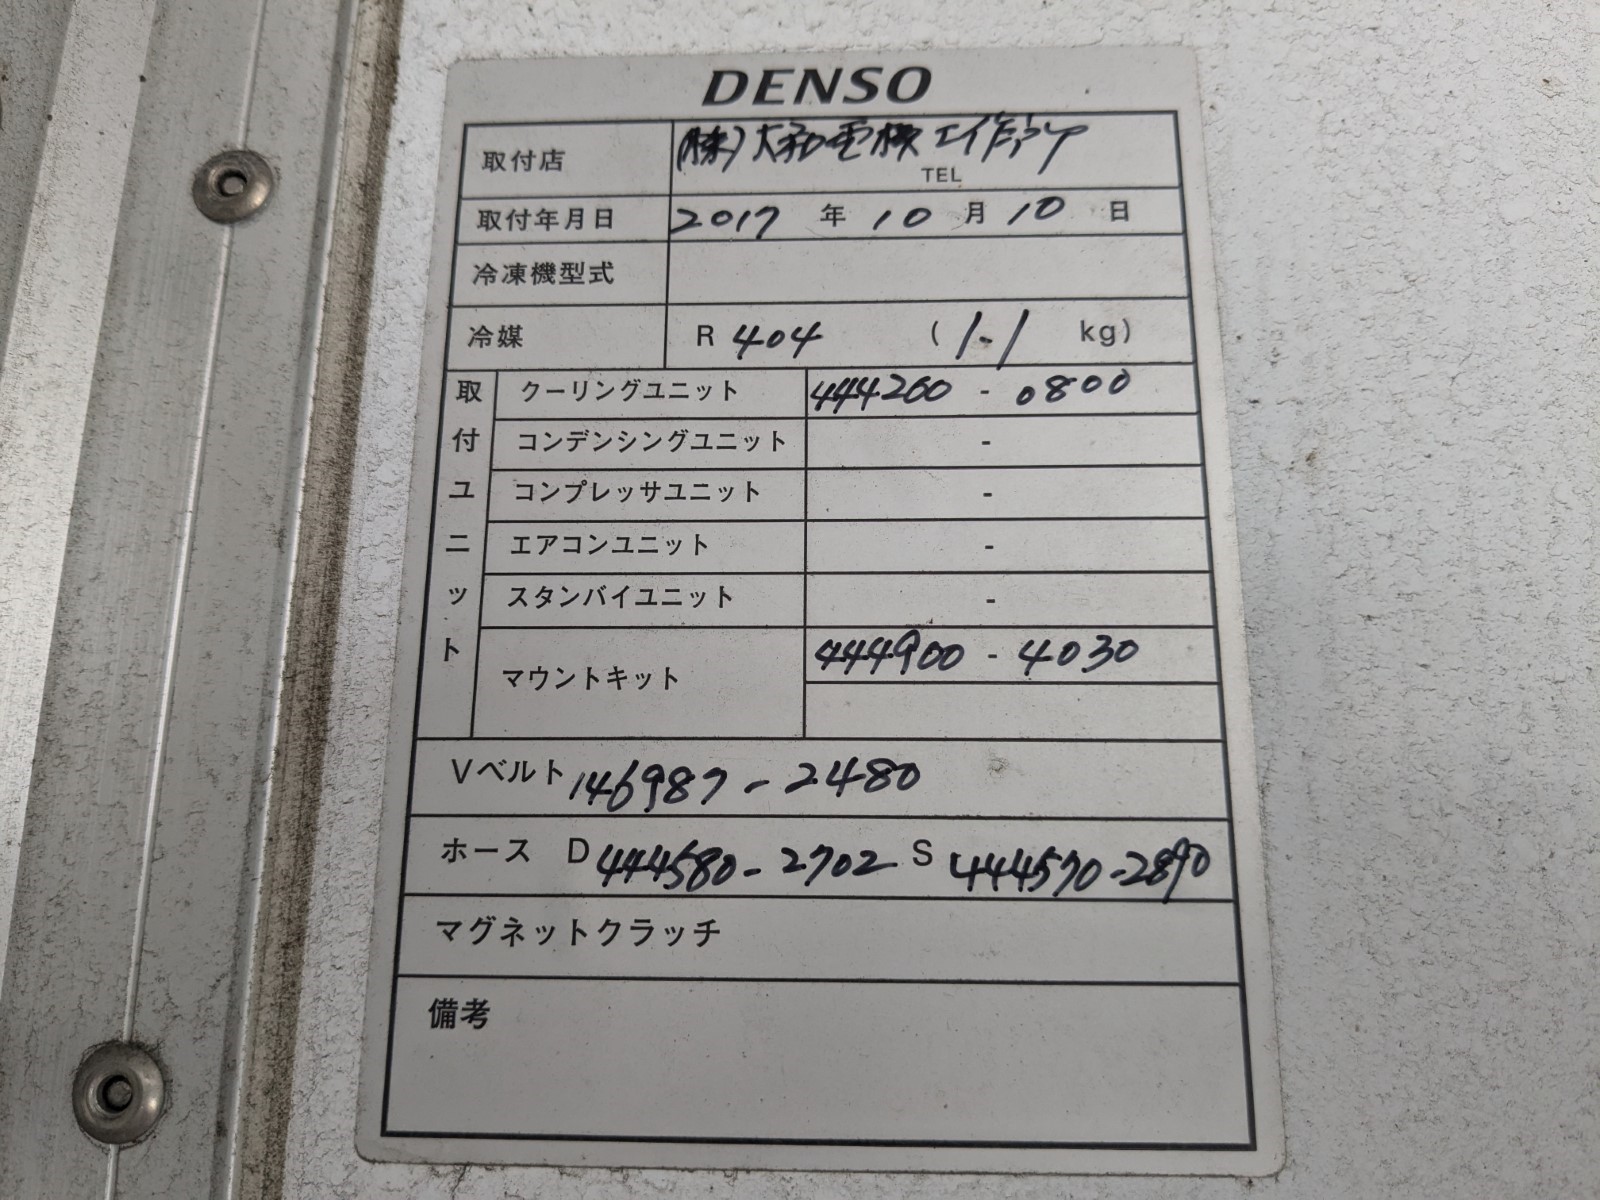 DENSO
取付店 (株)大和電機工作所
TEL
取付年月日 2017 年 10 月 10 日
冷凍機型式
冷媒 R 404 ( 1.1 kg)
取付ユニット
クーリングユニット 444260 - 0800
コンデンシングユニット -
コンプレッサユニット -
エアコンユニット -
スタンバイユニット -
マウントキット 444900 - 4030
Vベルト 146987-2480
ホース D 444580-2702 S 444570-2890
マグネットクラッチ
備考